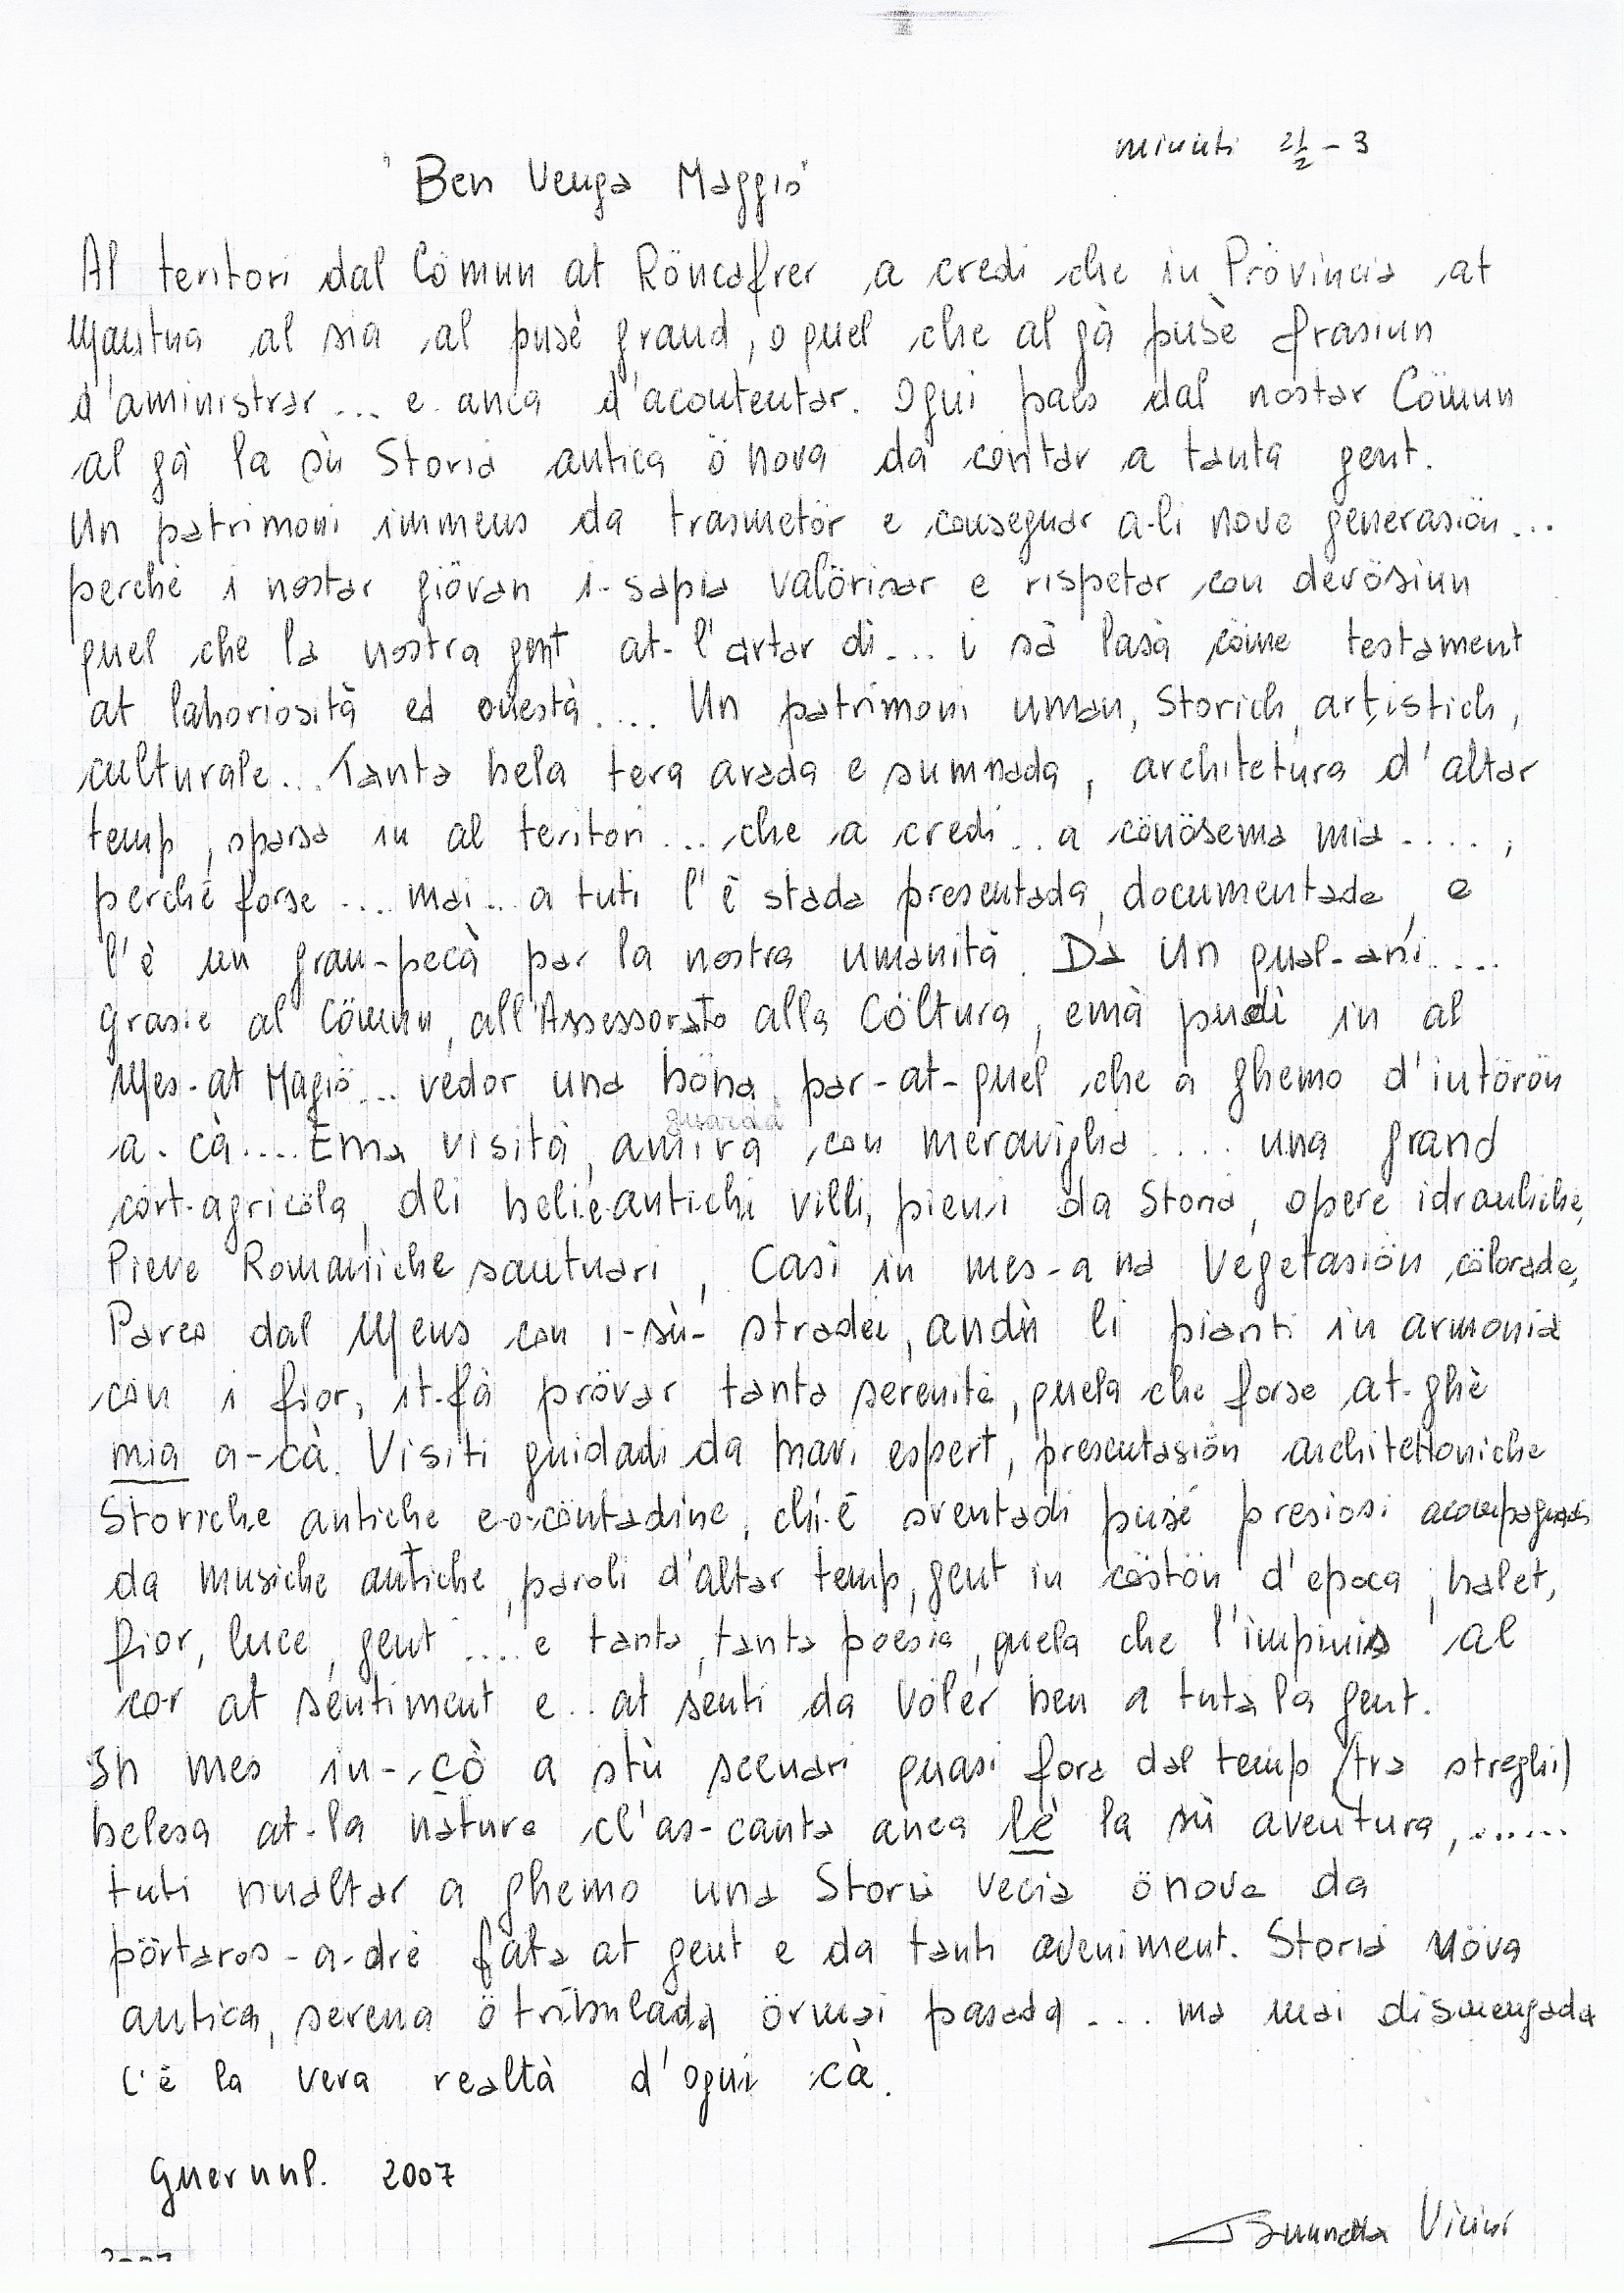 minuti 2½ - 3
"Ben Venga Maggio"
Al teritori dal Cömun at Röncafrer a credi che in Pròvincia at
Mantua al sia al pusè grand, o quel che al gà pusè frasiun
d'aministrar... e anca d'acontentar. Ogni paes dal nostar Cömun
al gà la sù Storia antica ö nova da contar a tanta gent.
Un patrimoni immens da trasmetör e consegnar a-li nove generasiön...
perchè i nostar giövan i-sapia valörisar e rispetar con devösiun
quel che la nostra gent at-l'artar dì... i sà lasà cöme testament
at laboriosità ed onestà.... Un patrimoni uman, Storich, artistich,
culturale... Tanta bela tera arada e sumnada, architetura d'altar
temp, sparsa in al teritori... che a credi.. a cönösema mia....,
perchè forse... mai.. a tuti l'è stada presentada, documentada, e
l'è un gran-pecà par la nostra umanità. Da Un qual-ani....
grasie al Cömun, all'Assessorato alla Cöltura, emà pudì in al
Mes-at Magiö... vedor una böna par-at-quel che a ghemo d'intörön
guardà
a-cà.... Ema visità, amirà con meraviglia.... una grand
cört-agricöla, dli beli e antichi villi, pieni da Storia, opere idrauliche,
Pieve Romaniche santuari, Casi in mes-a na Vegetasiön cölorada,
Parco dal Mens con i-sù-stradei, andù li pianti in armonia
con i fior, it-fà pròvar tanta serenità, quela che forse at-ghè
mia a-cà. Visiti guidadi da bravi espert, presentasiön architettoniche
Storiche antiche e-o-cöntadine, chi-è sventadi pusè presiosi acompagnadi
da musiche antiche, paroli d'altar temp, gent in cöstön d'epoca, balet,
fior, luce, gent.... e tanta, tanta poesia, quela che l'impinis al
cor at sentiment e.. at senti da völer ben a tuta la gent.
In mes in-cò a stù scenari quasi fora dal temp (tra streghi)
belesa at-la natura cl'as-canta anca lè la sù aventura,......
tuti nualtar a ghemo una Storia vecia ö nova da
pörtaros-a-drè fata at gent e da tanti aveniment. Storia Növa
antica, serena ö tribulada örmai pasada... ma mai dismengada
l'è la vera realtà d'ogni cà.
2007
2007